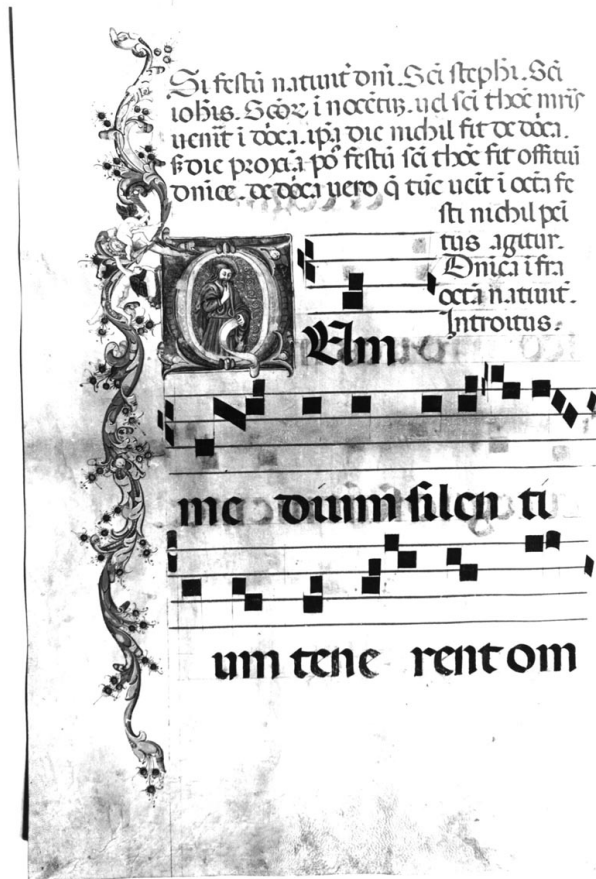 Si festū natiuit̄ dnī. Scī stephī. Scī
ioħis. Scōꝝ ī nocētiū. uel scī thoē mr̄is
uenīt ī dōica. ip̄a die nichil fit de dōica.
s̄ die proxīa pꝰ festū scī thoē fit offitiū
dnīce. de dōica uero q̄ tūc ueīt ī octā fe
sti nichil peī
tus agitur.
Dnīca īfra
octā natiuit̄.
Introitus.
DUm
me dium silen ti
um tene rent om